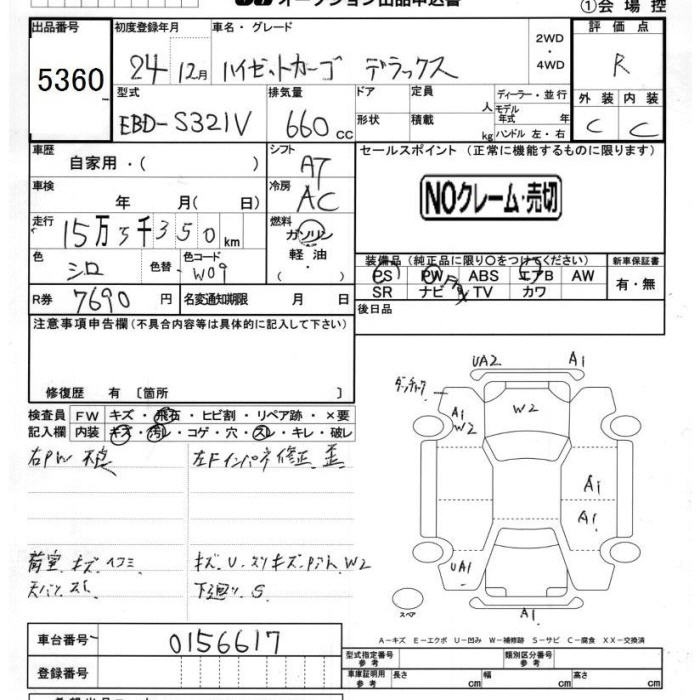 オークション出品申込書
①会 場 控
出品番号
5360
初度登録年月
24 12月
車名・グレード
ハイゼットカーゴ デラックス
2WD
・
4WD
評 価 点
R
外 装 内 装
C C
型式
EBD-S321V
排気量
660 cc
ドア
形状
定員 人
積載 kg
ディーラー・並行
モデル年式 年
ハンドル 左・右
車歴
自家用・( )
シフト
AT
セールスポイント (正常に機能するものに限ります)
NOクレーム・売切
車検
年 月( 日)
冷房
AC
走行
15万5千350km
燃料
ガソリン
軽・油
・( )
色
シロ
色替
色コード
W09
装備品 (純正品に限り○をつけてください)
新車保証書
PS PW ABS エアB AW
SR ナビ TV カワ
有・無
R券 7690 円
名変通知期限 月 日
後日品
注意事項申告欄 (不具合内容等は具体的に記入して下さい)
修復歴 有 〔箇所 〕
検査員
記入欄
FW キズ・飛石・ヒビ割・リペア跡・×要
内装 キズ・汚レ・コゲ・穴・スレ・キレ・破レ
右PW 不良
左Fインパネ修正 歪
荷室 キズ ヘコミ
キズ.U.スリキズ.Pアト.W2
下廻り S
UA2 A1
W2
A1
W2
A1
A1
UA1
A1
スペア
A-キズ E-エクボ U-凹み W-補修跡 S-サビ C-腐食 XX-交換済
車台番号 0156617
登録番号
型式指定番号
参 考
類別区分番号
参 考
車庫証明用
参 考
長さ cm 幅 cm 高さ cm